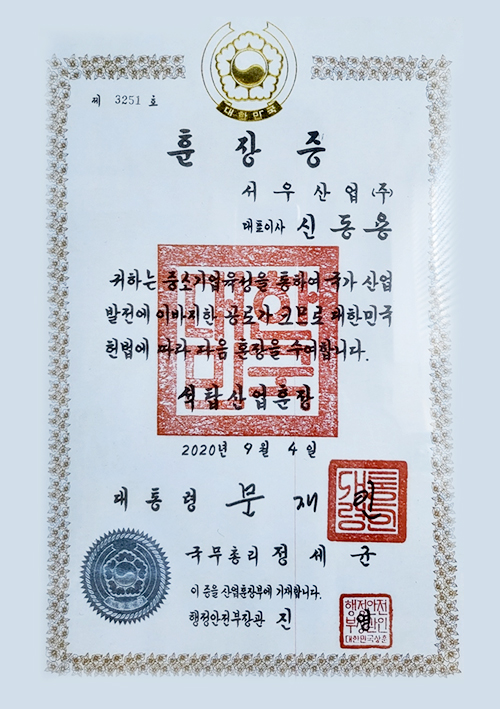 대한민국
제 3251 호
훈장증
서우산업(주)
대표이사 신동용
귀하는 중소기업육성을 통하여 국가 산업
발전에 이바지한 공로가 크므로 대한민국
헌법에 따라 다음 훈장을 수여합니다.
석탑산업훈장
2020년 9월 4일
대통령 문재인
국무총리 정세균
이 증을 산업훈장부에 기재합니다.
행정안전부장관 진영